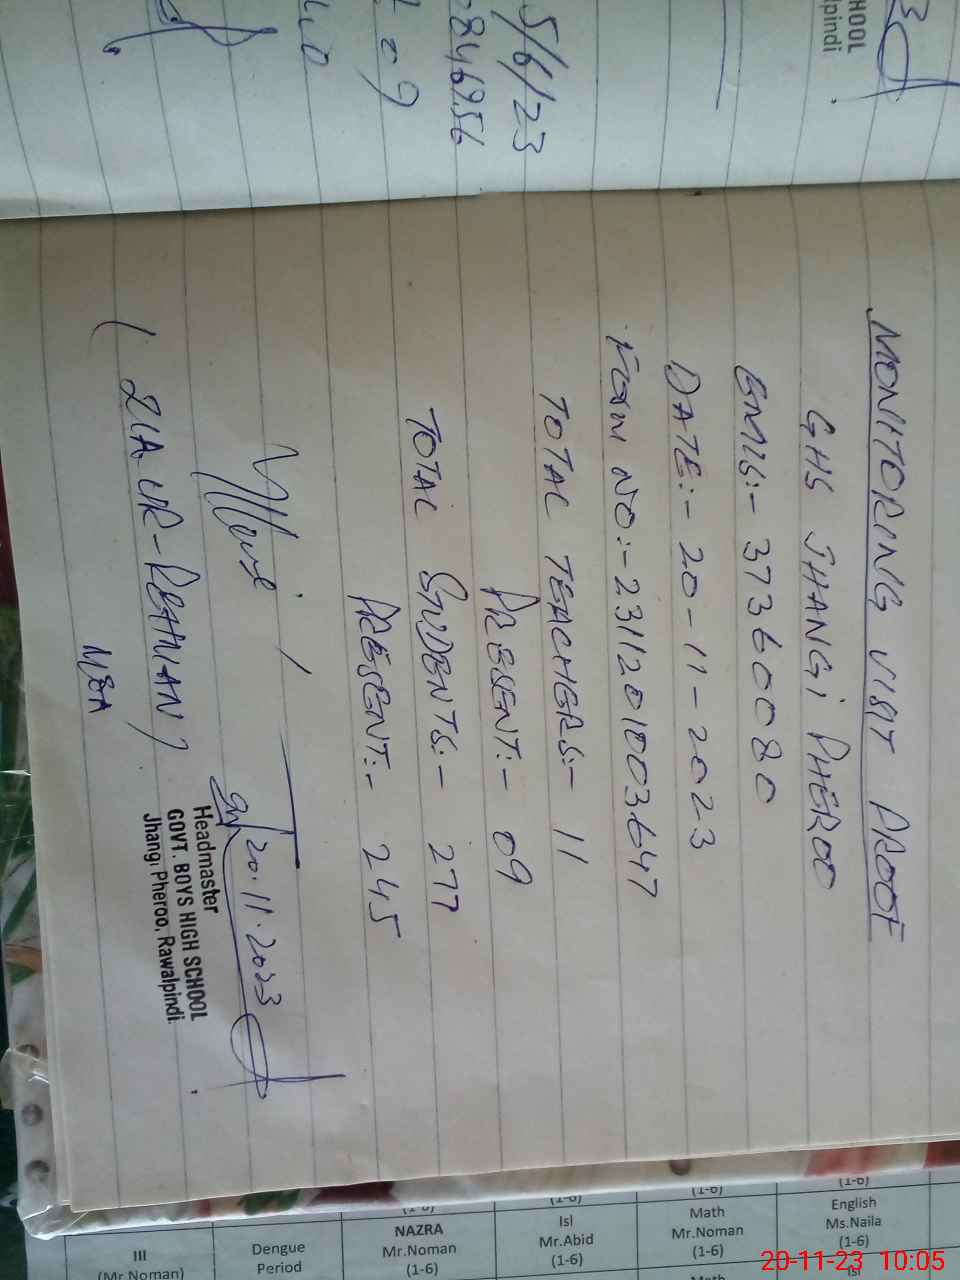 MONITORING VISIT PROOF
GHS JHANGI PHEROO
EMIS:- 37360080
DATE:- 20-11-2023
FORM NO:- 2311201003647
TOTAL TEACHERS:- 11
PRESENT:- 09
TOTAL STUDENTS:- 277
PRESENT:- 245
(ZIA UR-REHMAN)
MEA
20.11.2023
Headmaster
GOVT. BOYS HIGH SCHOOL
Jhangi Pheroo, Rawalpindi.
HOOL
lpindi
5/6/23
846956
09
III
(Mr.Noman)
Dengue
Period
NAZRA
Mr.Noman
(1-6)
(1-6)
Isl
Mr.Abid
(1-6)
(1-6)
Math
Mr.Noman
(1-6)
Math
(1-6)
English
Ms.Naila
(1-6)
Isl
20-11-23 10:05